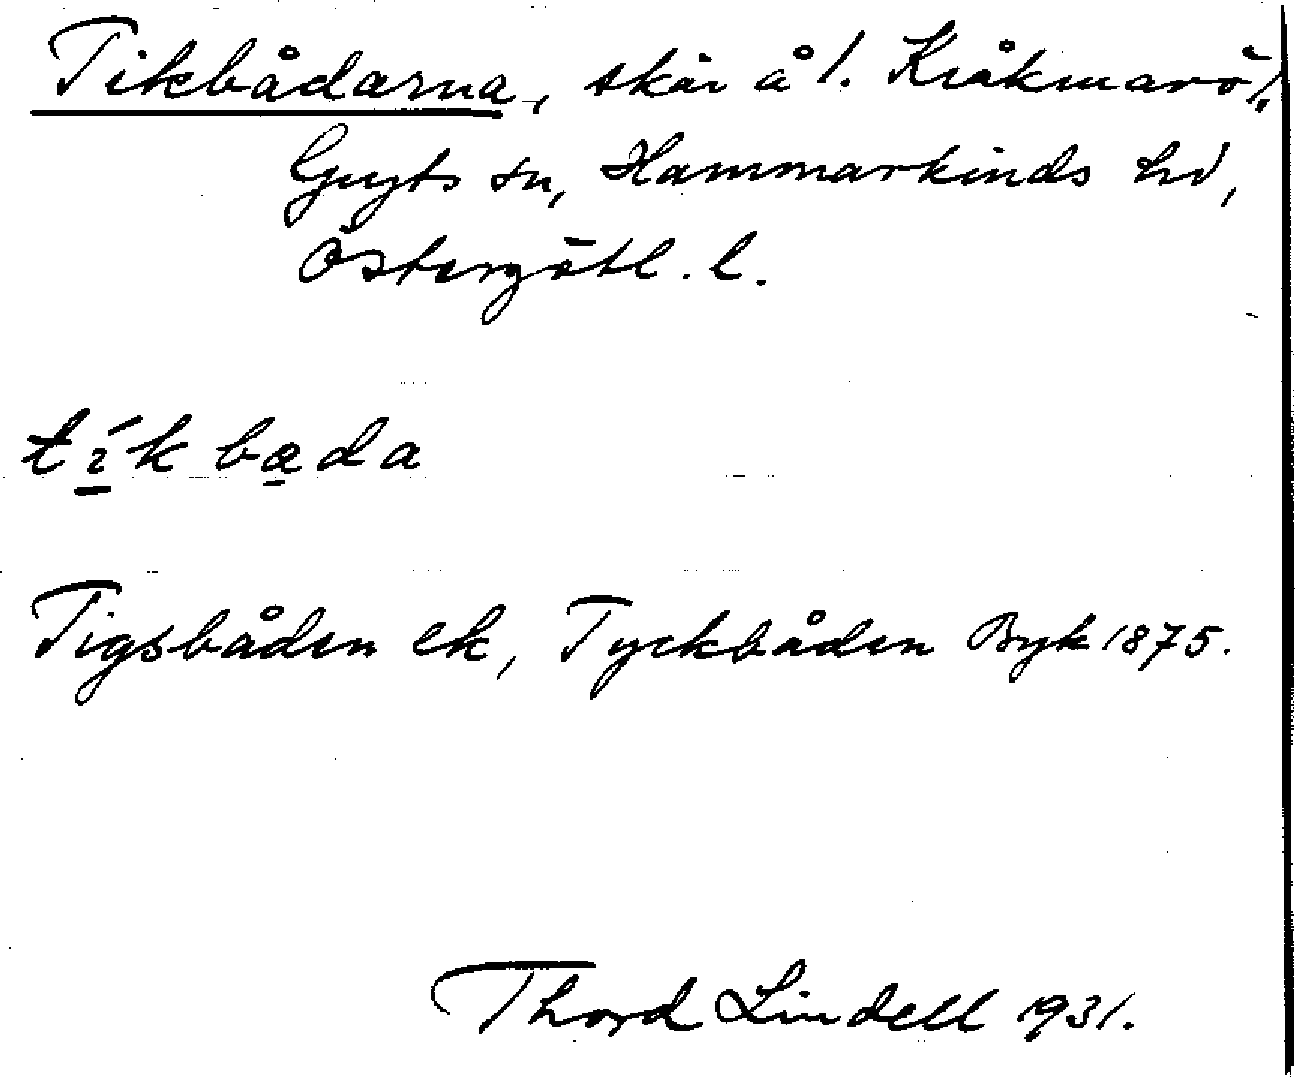 Tikbådarna, skär å l. Kråkmarö l.
Gryts sn, Hammarkinds hd,
Östergötl. l.
tík båda
Tigsbåden ek, Tyckbåden Byk 1875.
Thord Lindell 1931.